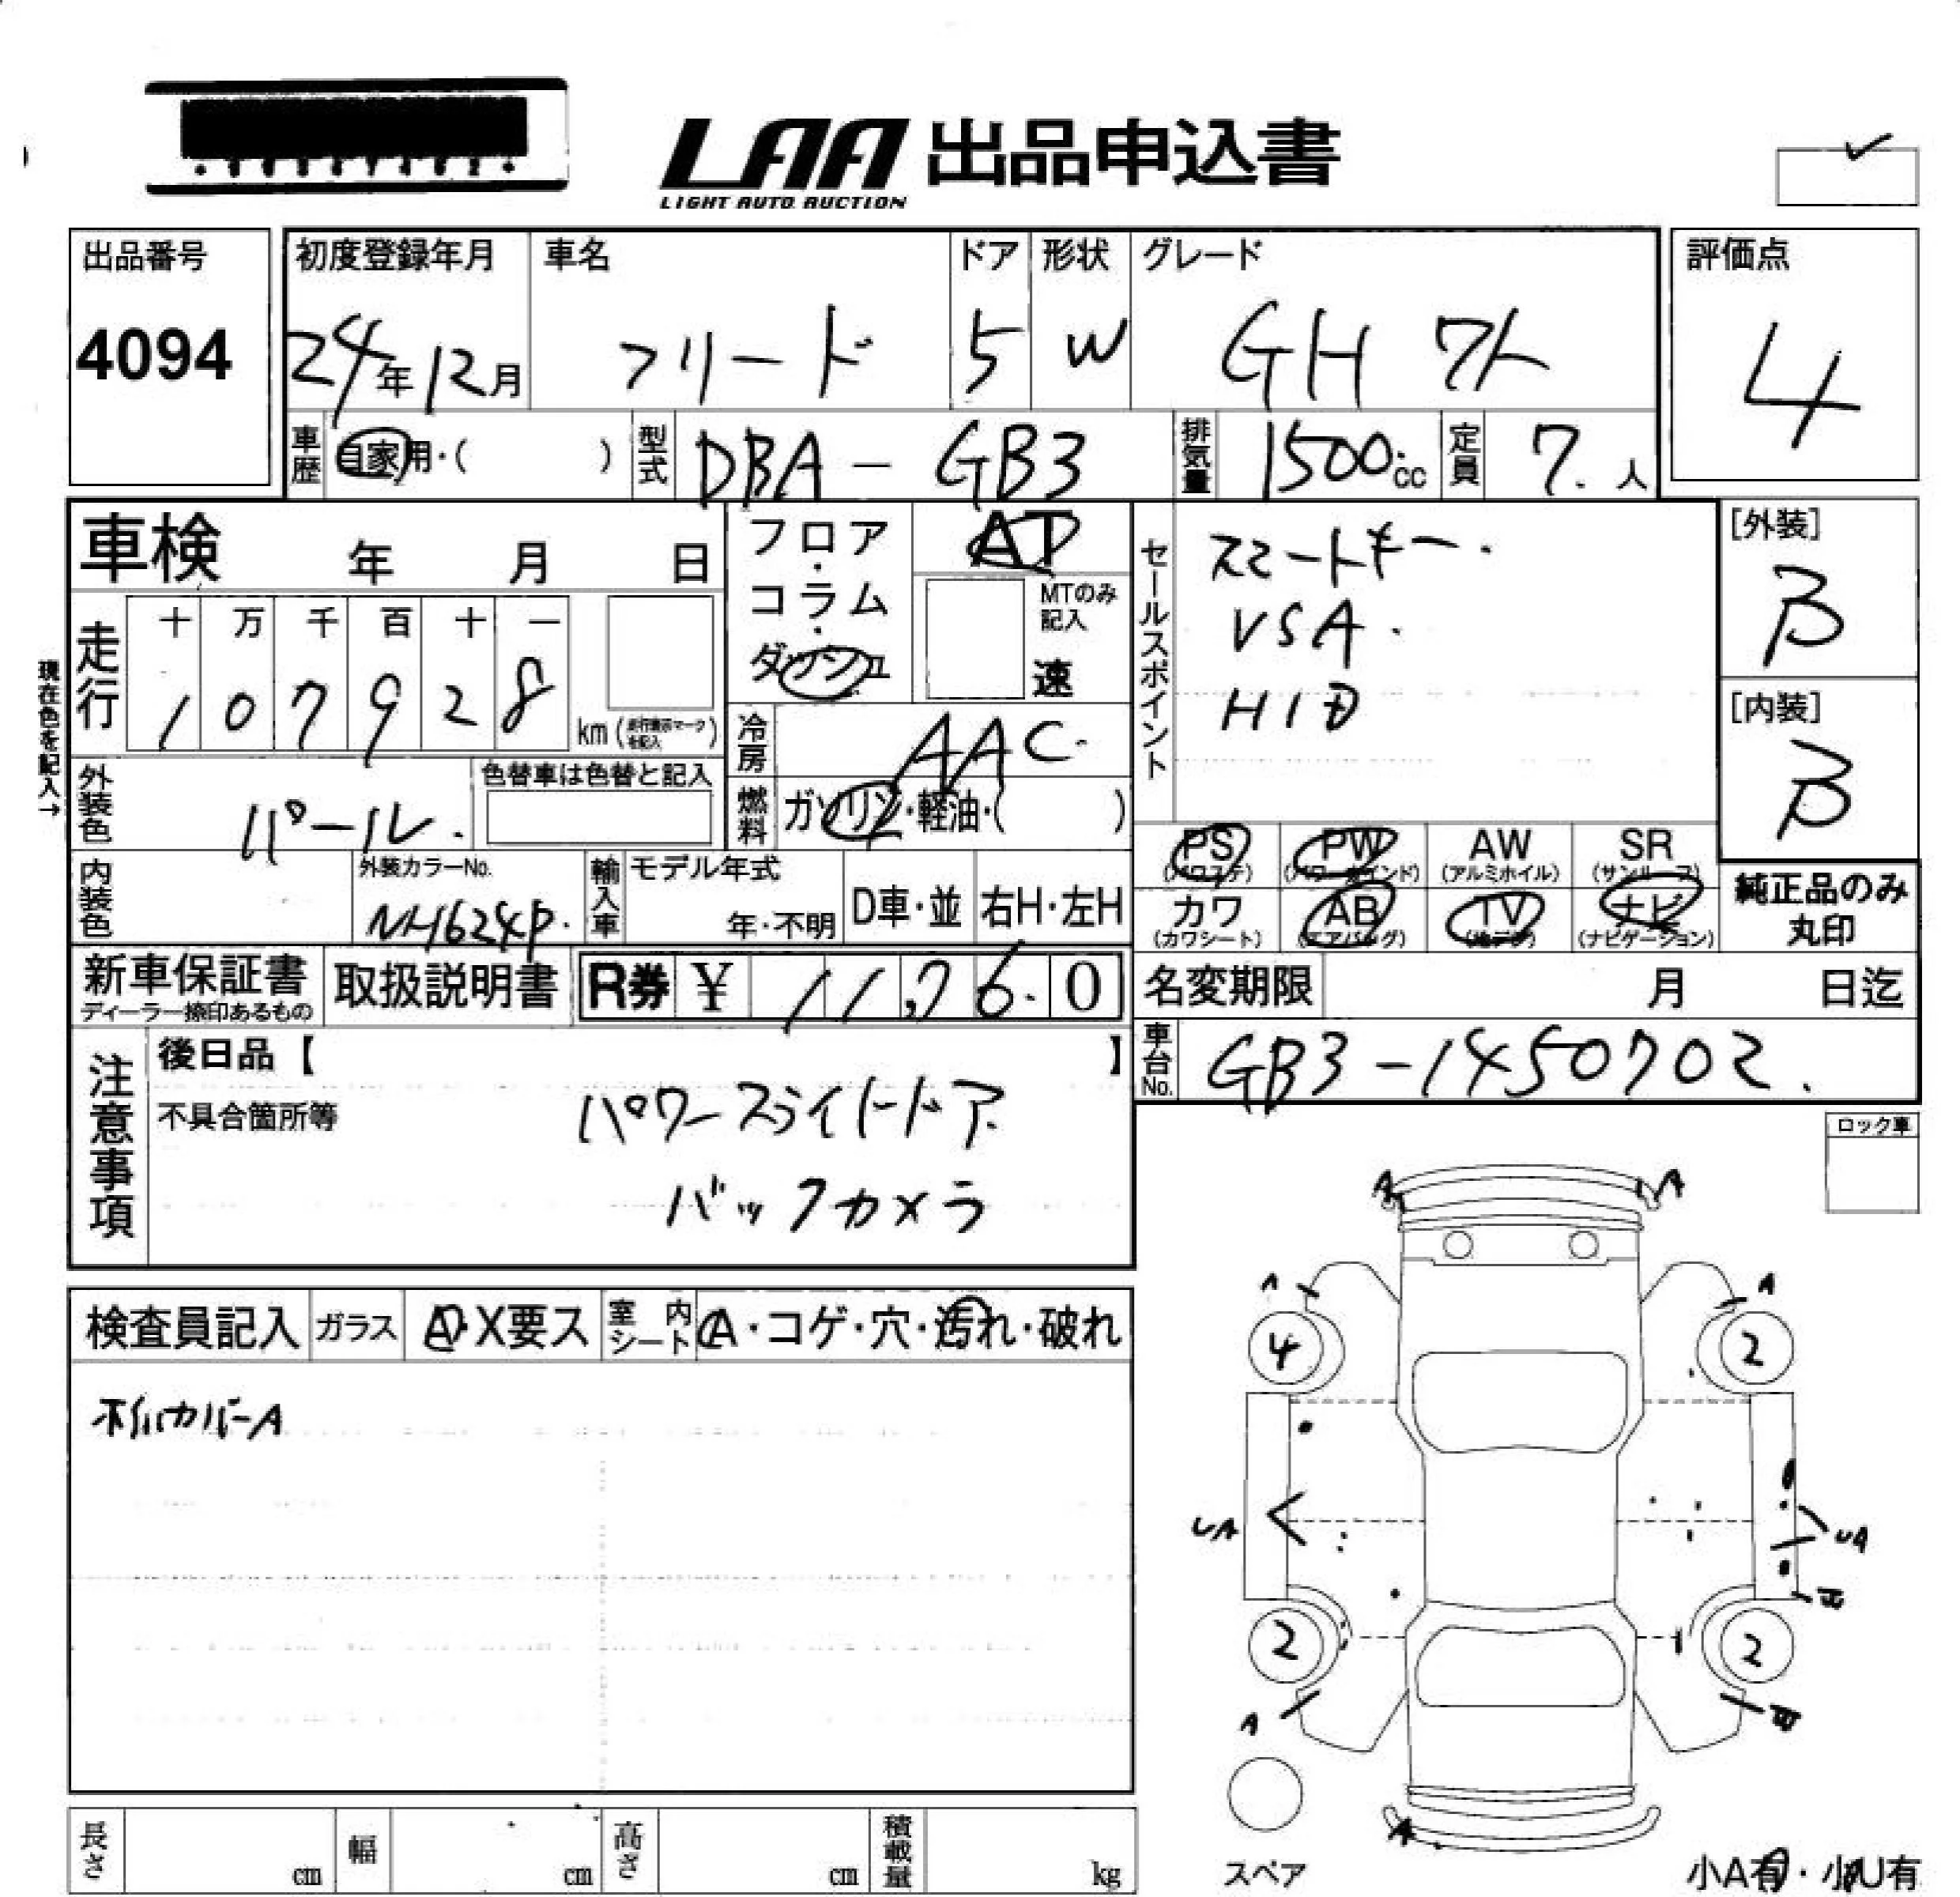 LAA 出品申込書
LIGHT AUTO AUCTION
出品番号
4094
初度登録年月
24年12月
車名
フリード
ドア
5
形状
W
グレード
GH
評価点
4
車歴
自家用・( )
型式
DBA-GB3
排気量
1500cc
定員
7.人
車検 年 月 日
フロア・コラム・ダッシュ
AT
MTのみ記入
速
セールスポイント
スマートキー.
VSA.
HID
[外装]
B
[内装]
B
現在色を記入→
走行
十 万 千 百 十 一
1 0 7 9 2 8
km(走行表示マークを記入)
冷房
AAC.
外装色
パール.
色替車は色替と記入
燃料
ガソリン・軽油・( )
PS PW AW SR
(パワステ) (パワーウインド) (アルミホイル) (サンルーフ)
カワ AB TV ナビ
(カワシート) (エアバッグ) (地デジ) (ナビゲーション)
純正品のみ
丸印
内装色
外装カラーNo.
NH624P.
輸入車
モデル年式
年・不明
D車・並
右H・左H
新車保証書
ディーラー捺印あるもの
取扱説明書
R券 ¥ 11,76.0
名変期限 月 日迄
車台No.
GB3-1450702.
注意事項
後日品【 】
不具合箇所等
パワースライドドア
バックカメラ
ロック車
検査員記入
ガラス
A・X要ス
室内シート
A・コゲ・穴・汚れ・破れ
ホイルカバーA
A A
A A
4 2
UA UA
2 2
A
A
スペア
小A有・小U有
長さ cm
幅 cm
高さ cm
積載量 kg